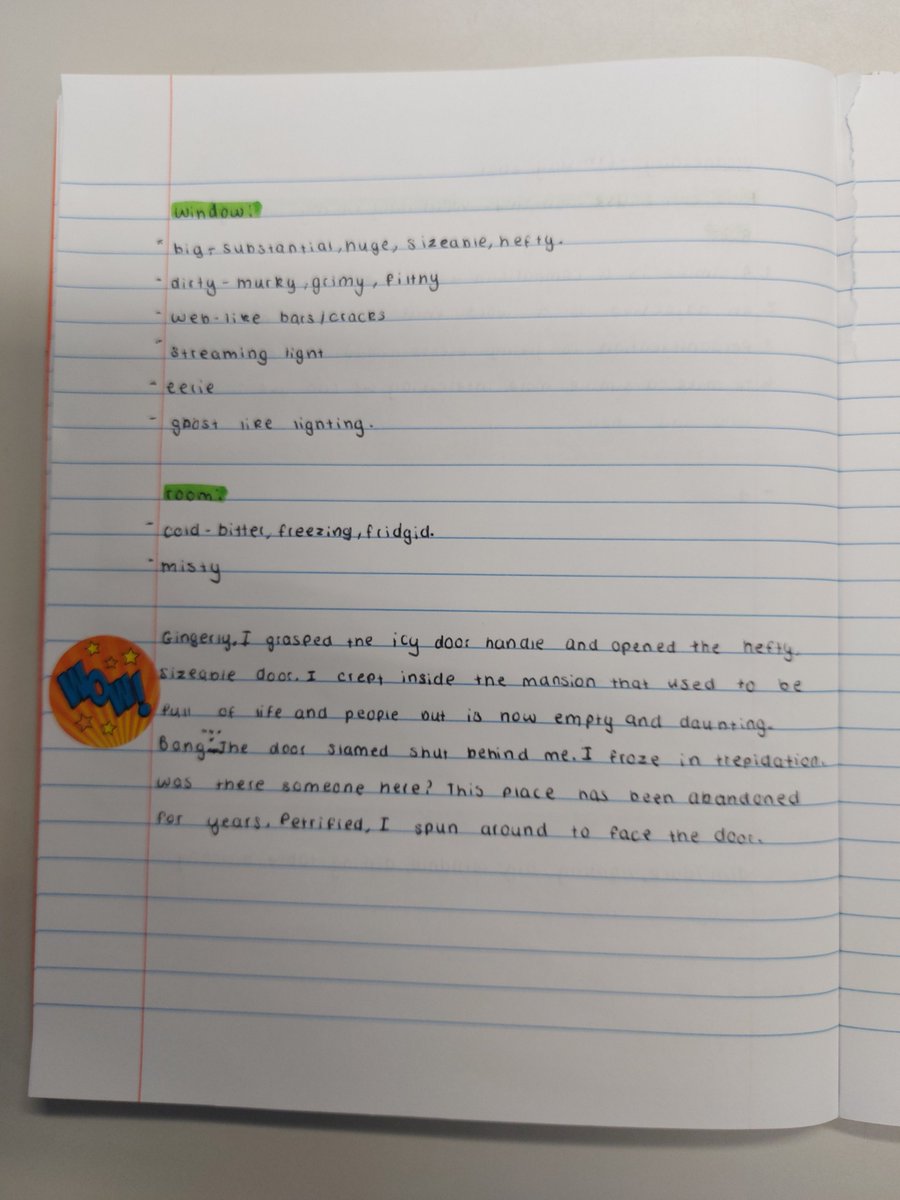 window:
* big - substantial, huge, sizeable, hefty.
- dirty - murky, grimy, filthy
- web-like bars/cracks
- streaming light
- eerie
- ghost like lighting.
room:
- cold - bitter, freezing, fridgid.
- misty
Gingerly, I grasped the icy door handle and opened the hefty
sizeable door. I crept inside the mansion that used to be
WOW!
full of life and people but is now empty and daunting.
Bang. The door slamed shut behind me. I froze in trepidation.
was there someone here? This place has been abandoned
for years. Petrified, I spun around to face the door.